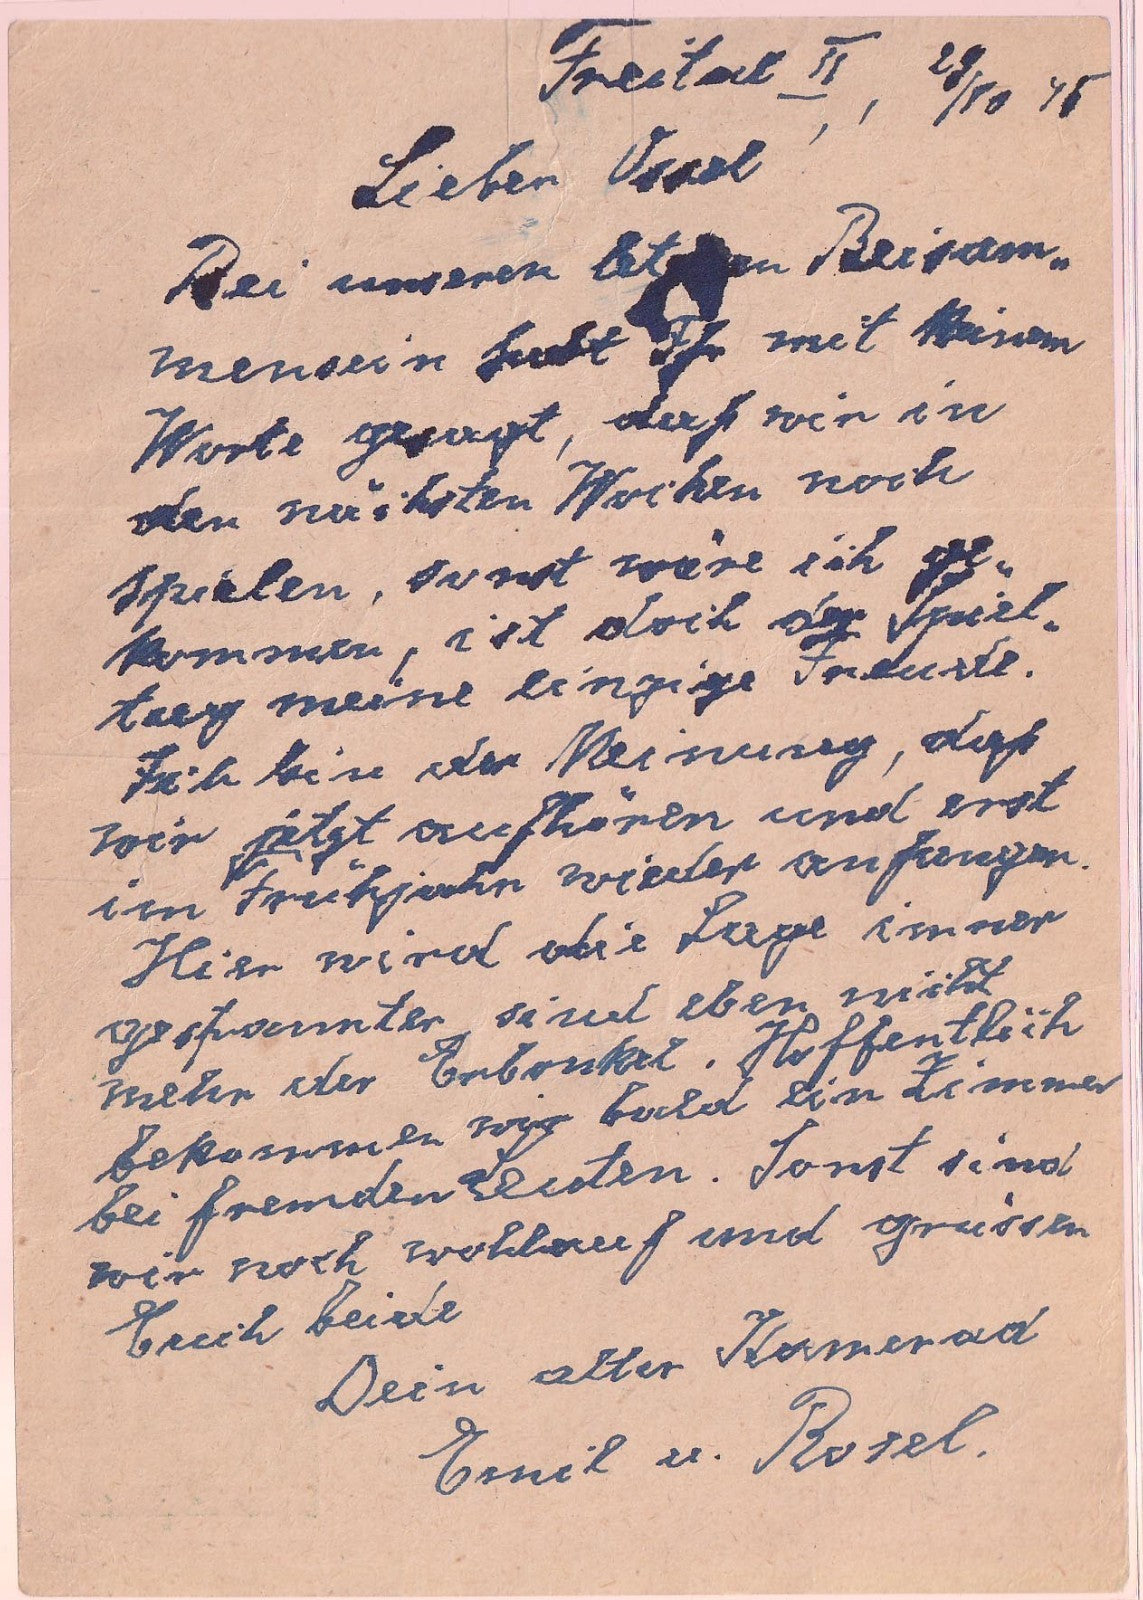 Freital II, 29/10 45
Lieber Ossel
Bei unseren letzten Beisam„
mensein habt Ihr mit keinem
Worte gesagt, daß wir in
den nächsten Wochen noch
spielen, sonst wäre ich ge„
kommen, ist doch der Spiel„
tag meine einzige Freude.
Ich bin der Meinung, daß
wir jetzt aufhören und erst
im Frühjahr wieder anfangen.
Hier wird die Lage immer
gespannter, sind eben nicht
mehr der Erbonkel. Hoffentlich
bekommen wir bald ein Zimmer
bei fremden Leuten. Sonst sind
wir noch wohlauf und grüssen
Euch beide
Dein alter Kamerad
Emil u. Rosel.